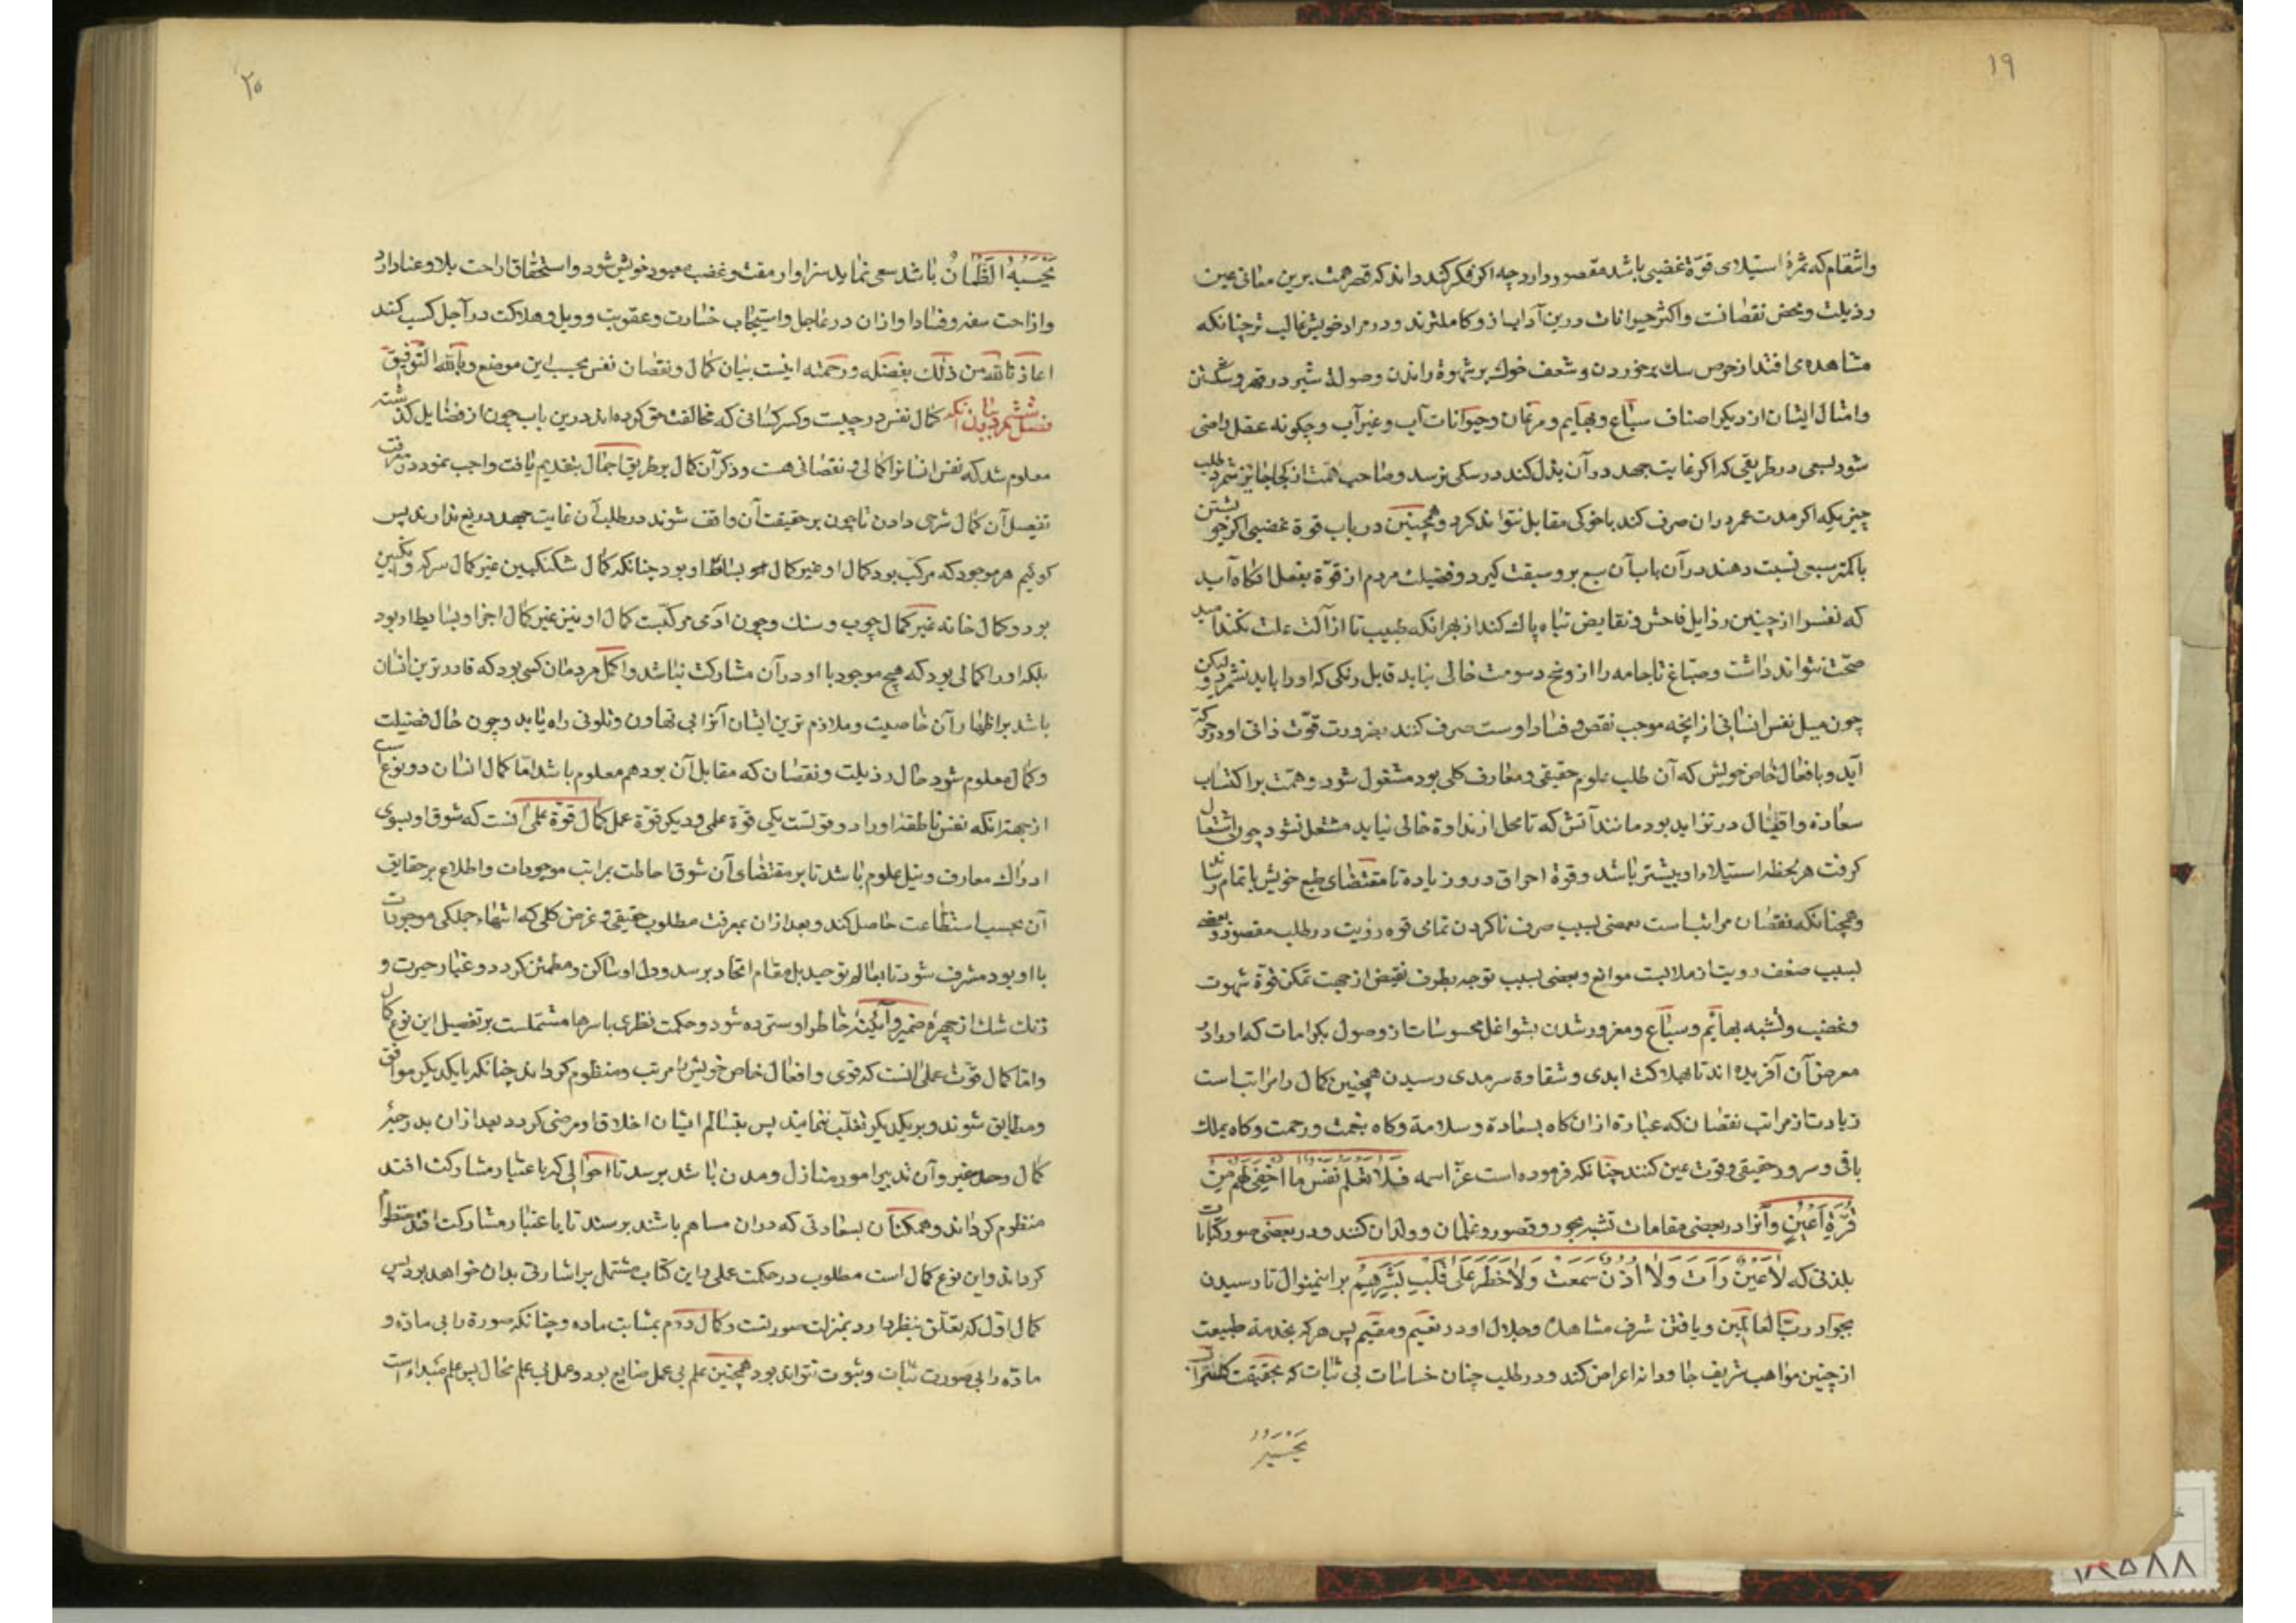 ۱۹
وانتقام که ثمرهٔ استیلای قوّة غضبی باشد مقصور دارد چه اکر فکر کند داند که قصر همت برین معانی عین
رذیلت و محض نقصانت و اکثر حیوانات درین آداب ازو کاملترند و در مراد خویش غالب تر چنانکه
مشاهده می افتد از حرص سك بر خوردن و شعف خوك بر شهوة راندن و صولة شیر در قهر و شکستن
و امثال ایشان از دیکر اصناف سباع و بهایم و مرغان و حیوانات آب و غیر آب و چکونه عقل راضی
شود بسعی در طریقی که اکر غایت جهد در آن بذل کند در سکی نرسد و صاحب همّت از کجا جایز شمرد طلب
چیزیکه اکر مدت عمر در ان صرف کند با خوکی مقابل نتواند کرد و همچنین در باب قوة غضبی اکر خویشتن
با کمتر سبعی نسبت دهند در آن باب آن سبع برو سبقت کیرد و فضیلت مردم از قوّة بفعل انکاه آید
که نفس را از چنین رذایل فاحش و نقایض تباه پاك کند از بهر انکه طبیب تا ازآلت علت نکند امید
صحّت نتواند داشت و صبّاغ تا جامه را از وسخ و دسومت خالی نیابد قابل رنکی که او را باید نشمرد ولیکن
چون میل نفس انسانی از انچه موجب نقص و فساد اوست صرف کنند بضرورت قوّت ذاتی او در حرکة
آید و بافعال خاص خویش که آن طلب علوم حقیقی و معارف کلی بود مشغول شود و همّت بر اکتساب
سعادة و اقتنال در تزاید بود مانند آتش که تا محل از نداوة خالی نیابد مشتعل نشود چون اشتعال
کرفت هر لحظه استیلاء او بیشتر باشد و قوة احراق درو زیادة تا مقتضای طبع خویش باتمام رساند
و همچنانکه نقصان مراتبست بعضی بسبب صرف ناکردن تمامی قوه رؤیت در طلب مقصود و بعضی
بسبب ضعف رویت از ملابست موانع و بعضی بسبب توجه بطرف نقیض از جهت تمکن قوة شهوت
و غضب و تشبه بهایم و سباع و مغرور شدن بشواغل محسوسات از وصول بکرامات که او را در
معرض آن آفریده اند تا بهلاکت ابدی و شقاوة سرمدی رسیدن همچنین کمال را مراتب است
زیادت از مراتب نقصان که عبارة ازان کاه بسعادة و سلامة و کاه بنعمت و رحمت و کاه بملك
باقی و سرور حقیقی و قوت عین کنند چنانکه فرموده است عزّ اسمه فَلَا تَعْلَم نَفْس مَا اخْفِیَ لَهُم مِن
قُرَّةِ اَعْیُنٍ و آنرا در بعضی مقامات تشبیه بحور و قصور و غلمان و ولدان کنند و در بعضی صور کنایات
بلذتی که لَا عَیْنٌ رَأَت وَلَا اُذُنٌ سَمِعَتْ وَلَا خَطَرَ عَلَی قَلْبِ بَشَرٍ هم بر اینمنوال تا رسیدن
بجوار ربّ العالمین و یافتن شرف مشاهدهٔ و جلال او در نعیم و مقیم پس هر که بخدمة طبیعت
از چنین مواهب شریف جاودانه اعراض کند و در طلب چنان خساسات بی ثبات که بحقیقت کسراب
یَحْسَبُهُ
۲۰
یَحْسَبُهُ الظَّمْاٰنُ باشد سعی نماید سزاوار مقت و غضب معبود خویش شود و استحقاق اراحت بلاد و عباد از و
و ازاحت سفه و فساد او ازان در عاجل و استیجاب خسارت و عقوبت و ویل و هلاکت در آجل کسب کند
اعاذنا الله من ذلك بفضله و رحمته اینست بیان کمال و نقصان نفس بحسب این موضع و بالله التوفیق
فصل ششم در بیان آنکه کمال نفس در چیست و کسر کسانی که مخالفت حق کرده اند درین باب چون از فصایل کذشته
معلوم شد که نفس انسانرا کمالی و نقصانی هست و ذکر آن کمال بر طریق اجمال بتقدیم یافت واجب نمود در معرفت
تفصیل آن کمال شرحی دادن تا چون بر حقیقت آن واقف شوند در طلب آن غایت جهد دریغ ندارند پس
کوئیم هر موجود که مرکّب بود کمال او غیر کمال جو بسائط او بود چنانکه کمال سکنکبین غیر کمال سرکه و انکبین
بود و کمال خانه غیر کمال چوب و سنك و چون آدمی مرکبّست کمال او نیز غیر کمال اجزا و بسایط او بود
بلکه او را کمالی بود که هیچ موجود با او در آن مشارکت نباشد و اکمل مردمان کسی بود که قادرترین انسان
باشد بر اظهار آن خاصیت و ملازم ترین ایشان آنرا بی تهاون و تلونی راه یابد و چون حال فضیلت
و کمال معلوم شود حال رذیلت و نقصان که مقابل آن بود هم معلوم باشد امّا کمال انسان دو نوع است
از جهة انکه نفس ناطقهٔ او را دو قوتست یکی قوّة علمی و دیکر قوّة عمل کمال قوّة علمی آنست که شوق او بسوی
ادراك معارف و نیل علوم باشد تا بر مقتضای آن شوق احاطت بمراتب موجودات و اطلاع بر حقایق
آن بحسب استطاعت حاصل کند و بعد ازان بمعرفت مطلوب حقیقی و غرض کلی که انتهاء جملکی موجودات
با او بود مشرف شود تا بعالم توحید بل مقام اتحاد برسد و دل او ساکن و مطمئن کردد و غبار حیرت و
زنك شك از چهرهٔ ضمیر و آئینهٔ خاطر او سترده شود و حکمت نظری باسرها مشتملست بر تفصیل این نوع کمال
و امّا کمال قوّت عملی آنست که قوی و افعال خاص خویش را مرتب و منظوم کرداند چنانکه با یکدیکر موافق
و مطابق شوند و بر یکدیکر تغلّب ننمایند پس بتسالم ایشان اخلاق او مرضی کردد بعد ازان بدرجهٔ
کمال و حد غیر و آن تدبیر امور منازل و مدن باشد برسد تا احوالی که باعتبار مشارکت افتد
منظوم کرداند و همکنان بسعادتی که دران مساهم باشند برسند تا با عتبار مشارکت افتد منظوم
کرداند و این نوع کمال است مطلوب در حکمت عملی و این کتاب مشتمل بر اشارتی بدان خواهد بود پس
کمال اوّل که تعلّق بنظر دارد بمنزلت صورتست و کمال دوم بمثابت ماده و چنانکه صورة را بی مادّه و
مادّه را بی صورت ثبات و ثبوت نتواند بود همچنین علم بی عمل ضایع بود و عمل بی علم محال پس علم مبداء است
۱۲۵۸۸